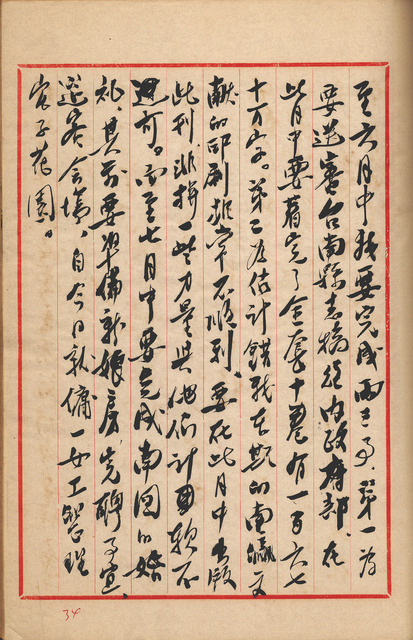 至六月中我要完成兩三事、第一為
要送審台南縣志稿經內政府部、在
此月中要着完了全套十卷有一百六七
十万字。第二為估計錯就本期的南瀛文
献的印刷非常不順利、要在此月中出版
此刊、非揮一些力量與他們計畫就不
過可。而至七月中要完成南圖的婚
礼、其前要準備新娘房、先聘了宣、
送客会場、自今日就傭一女工管理
家子花園。
34